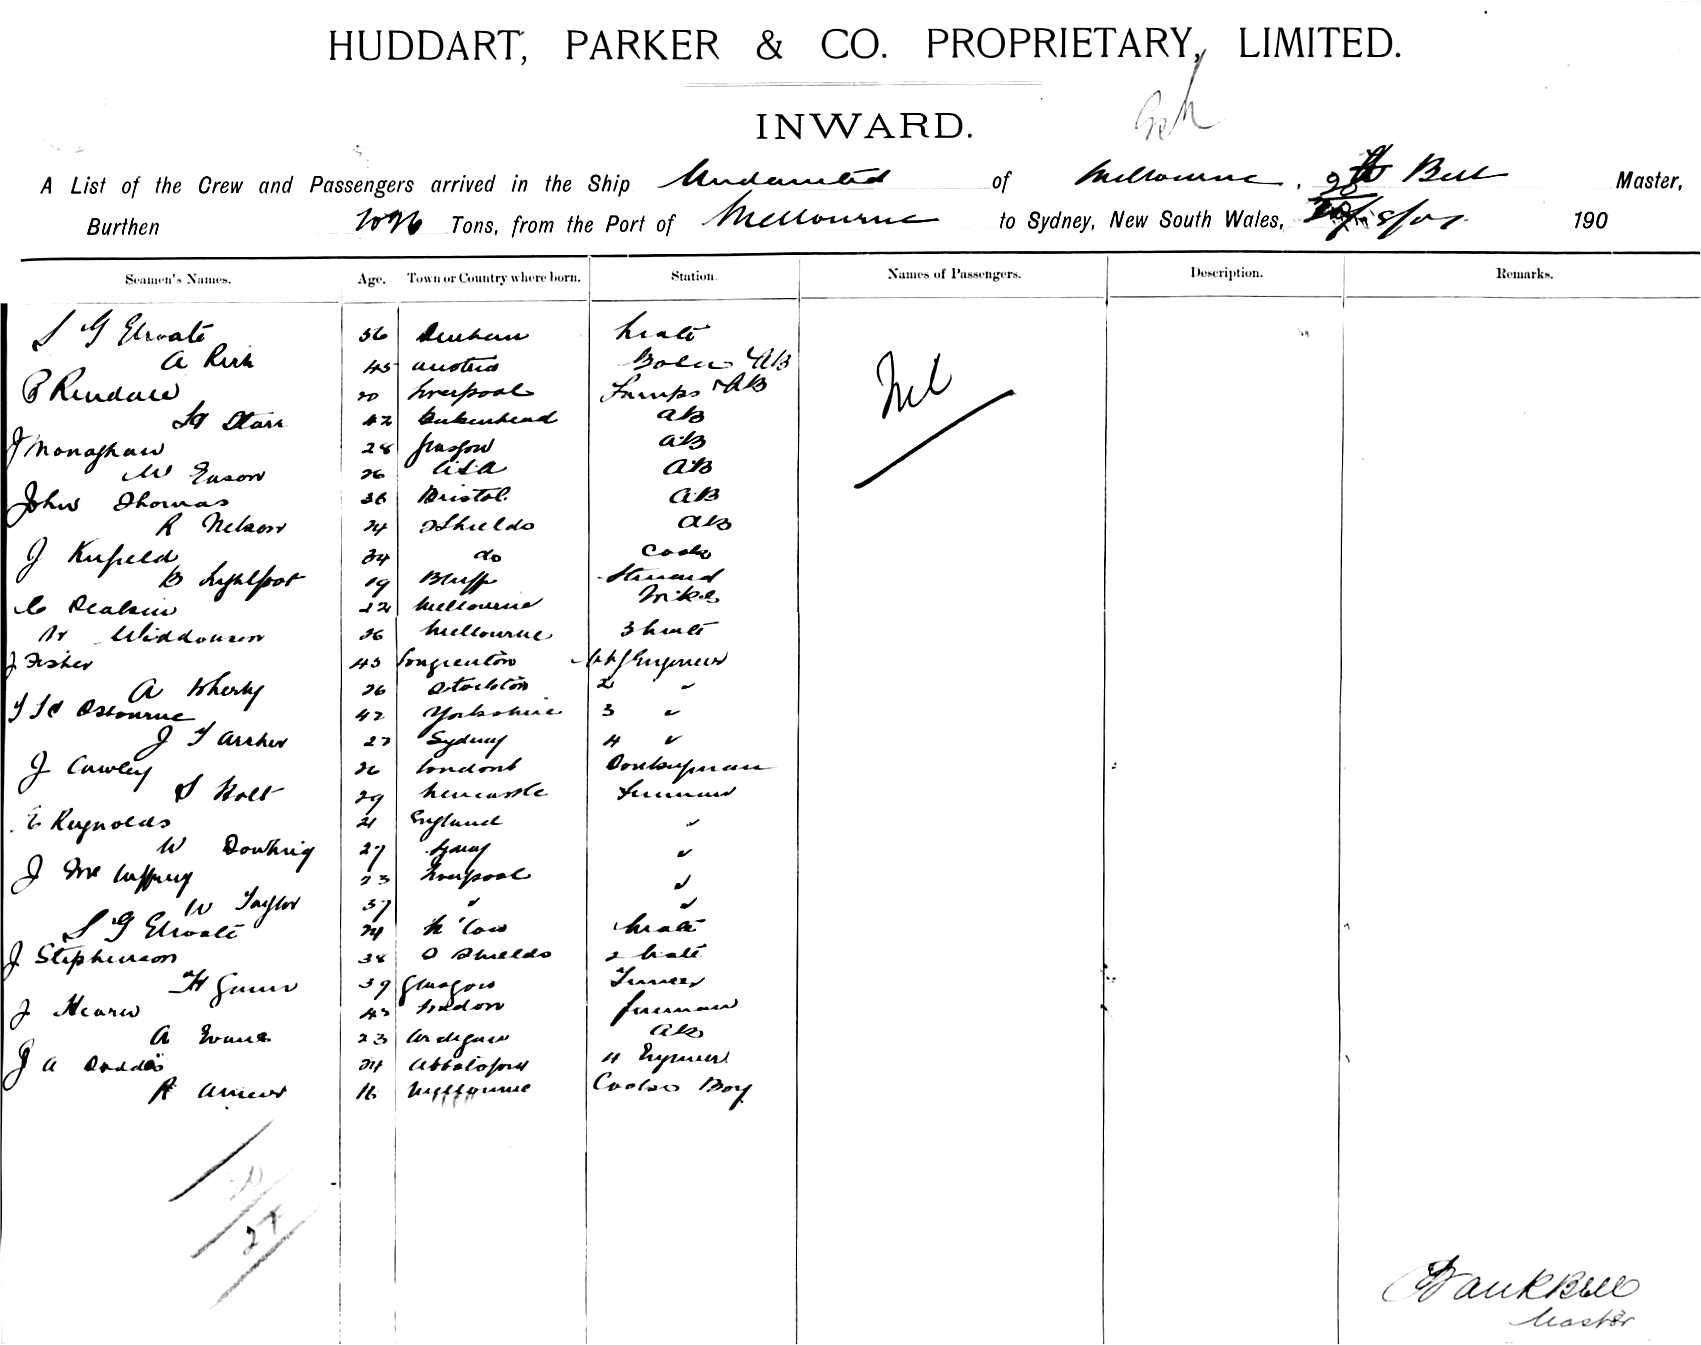 HUDDART, PARKER & CO. PROPRIETARY, LIMITED.
INWARD.
A List of the Crew and Passengers arrived in the Ship Undaunted of Melbourne, Bell Master,
Burthen Tons, from the Port of Melbourne to Sydney, New South Wales, 190
Seamen's Names. Age. Town or Country where born. Station. Names of Passengers. Description. Remarks.
S G Elwoate 56 Durham Mate
A Kirk 45 Austria Bosn & AB
Rendall 20 Liverpool Lamps & AB
Nil
H Starr 42 Birkenhead AB
J Monaghan 28 Glasgow AB
W Eason 26 AB
John Thomas 36 Bristol. AB
R Nelson 24 S Shields AB
J 34 do Cook
B Lightfoot 19 Bluff Steward
C Deakin 22 Melbourne
Widdowson 26 Melbourne 3 Mate
J Fisher 43 Engineer
A 26 Stockton 2 "
Osbourne 42 Yorkshire 3 "
J T Archer 27 Sydney 4 "
J Cowley 26 London Donkeyman
S Holt 29 Newcastle Fireman
E Reynolds 21 England "
W Dowling 27 "
J McCaffrey 23 Liverpool "
W Taylor 37 " "
S G Elwoate 24 Mate
J Stephenson 38 S Shields 2 Mate
H Gunn 39 Glasgow
J Hearn 43 London fireman
A Evans 23 Cardigan AB
J A Dodds 24 Abbotsford 4 Engineer
R 16 Melbourne Cooks Boy
27
Frank Bell
Master